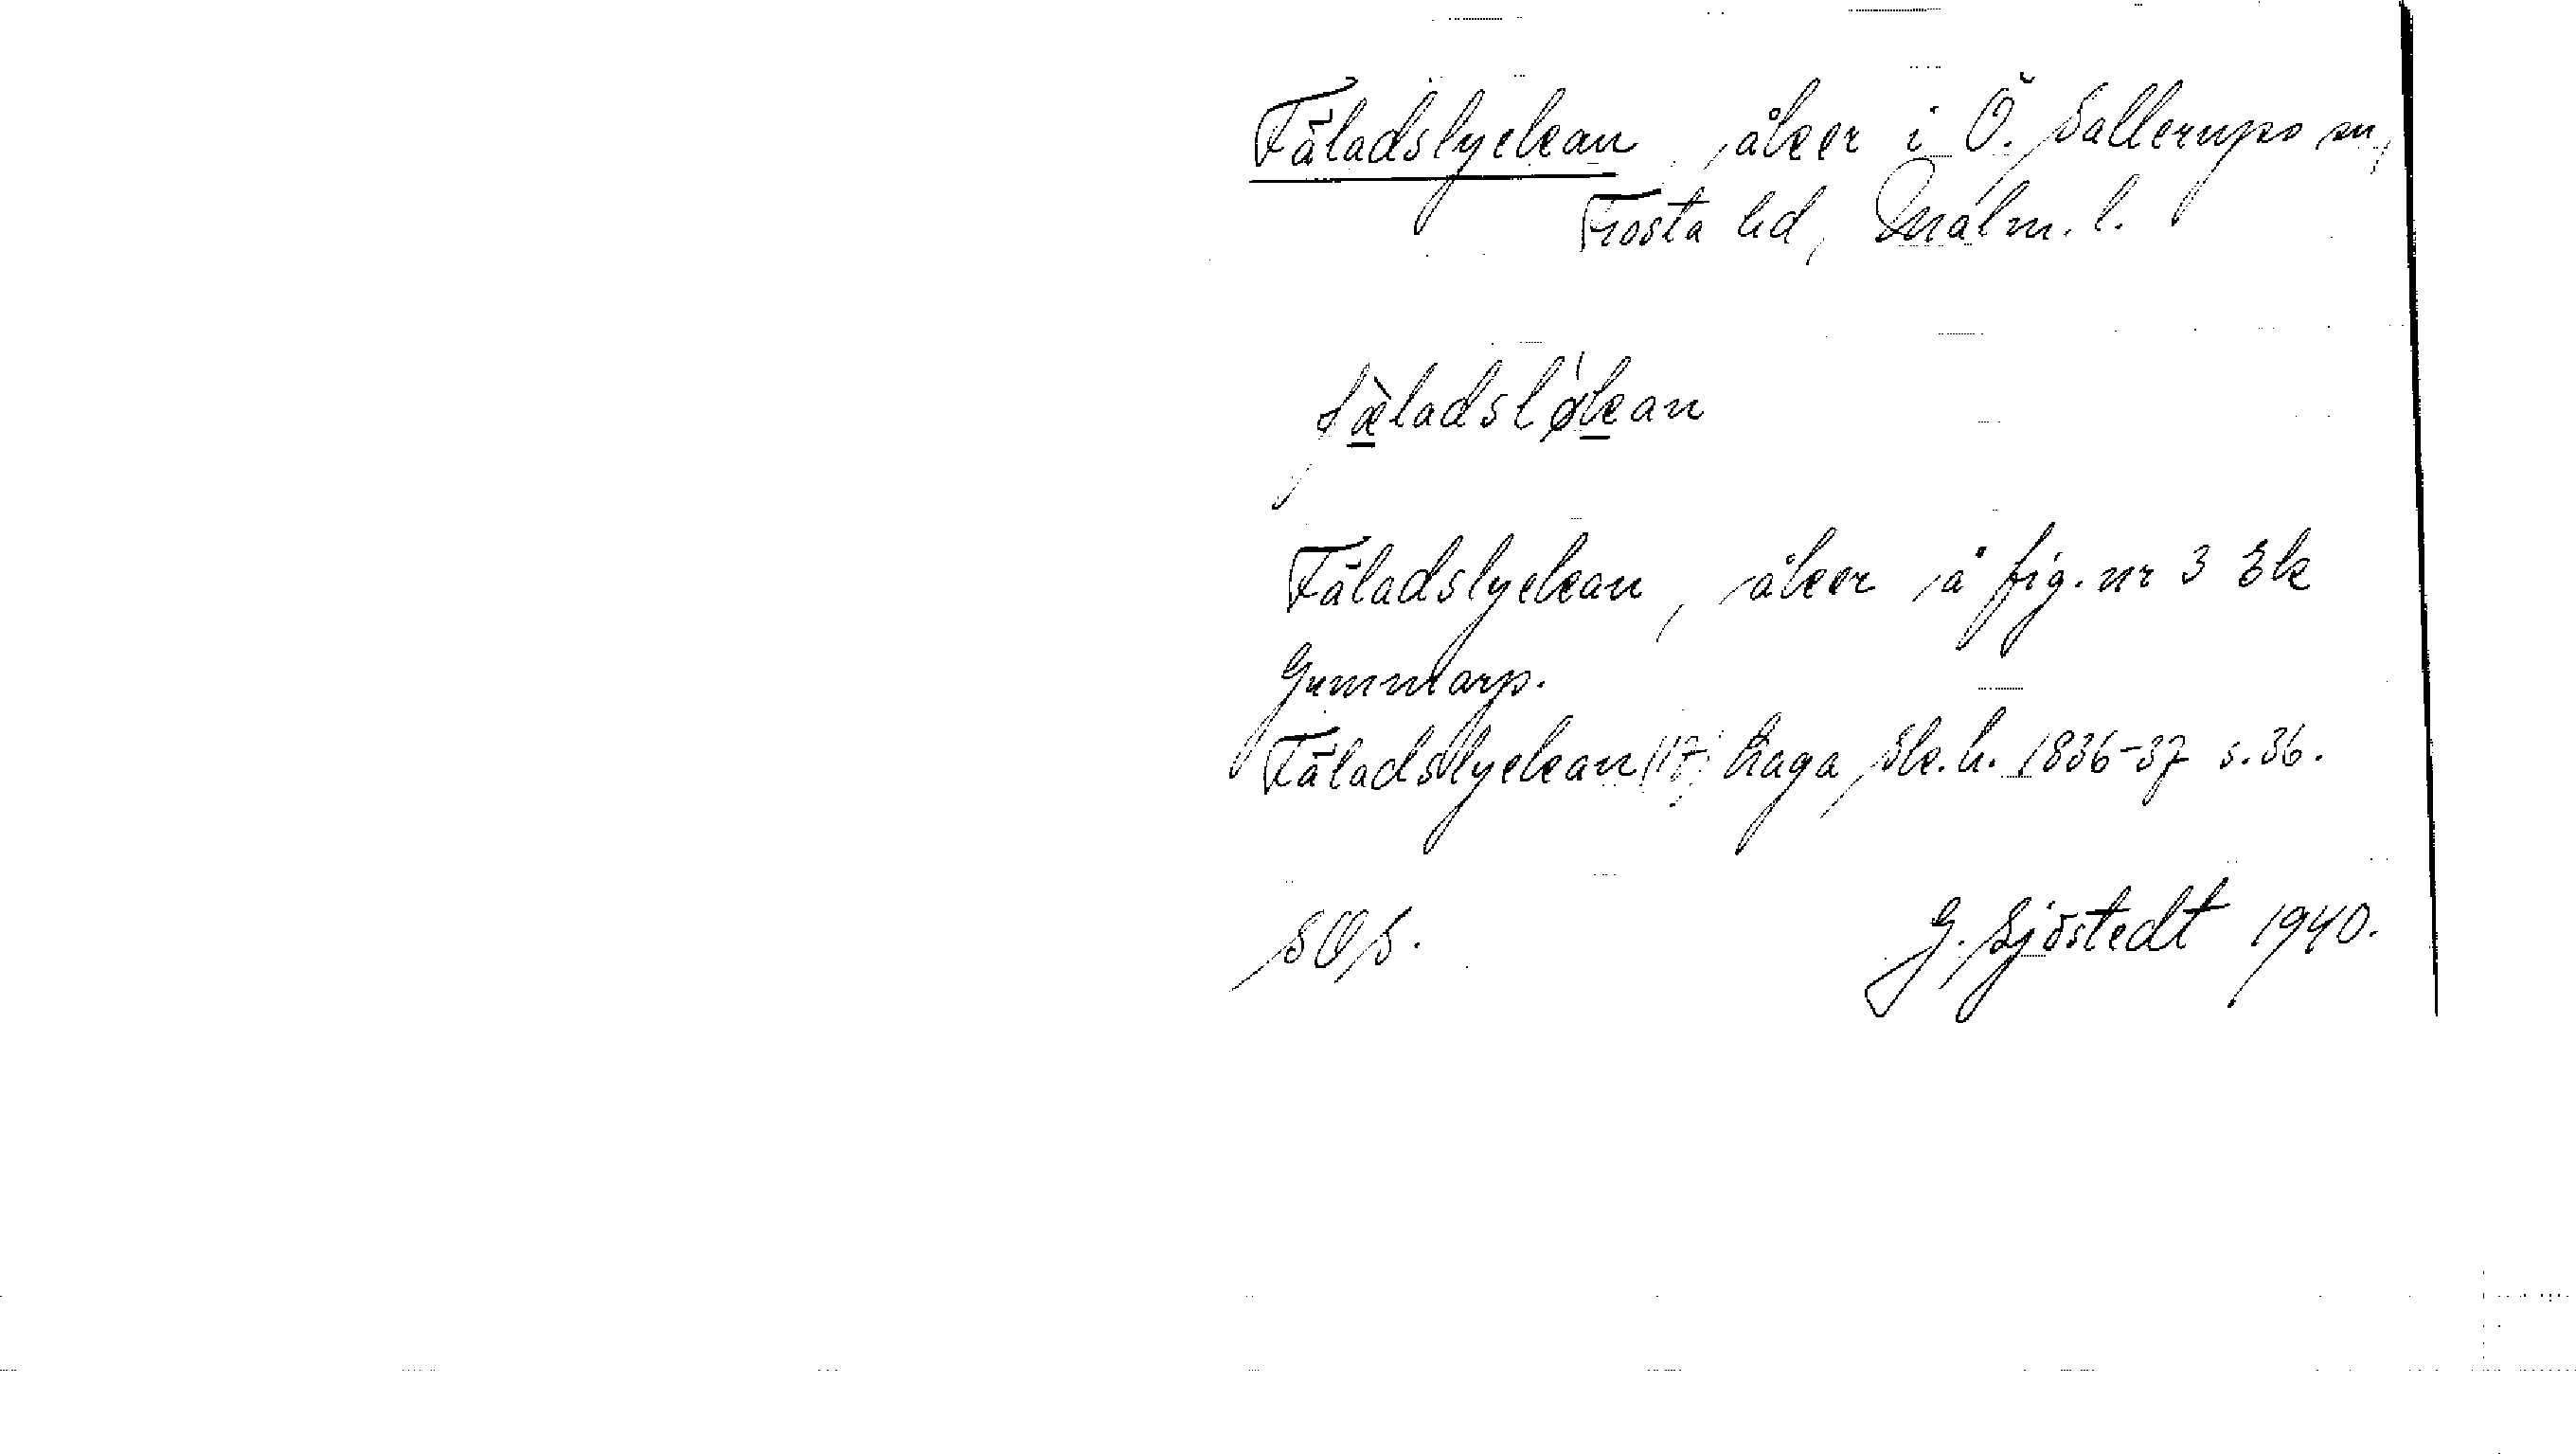 Fäladslyckan, åker i Ö. Sallerups sn,
Frosta hd, Malm. l.
fæ̀ladsløkan
Fäladslyckan, åker å fig. nr 3 Ek
Gummarp.
Fäladslyckan (17) Laga Sk. h. 1836-37 s. 36.
SOS.
G. Sjöstedt 1940.